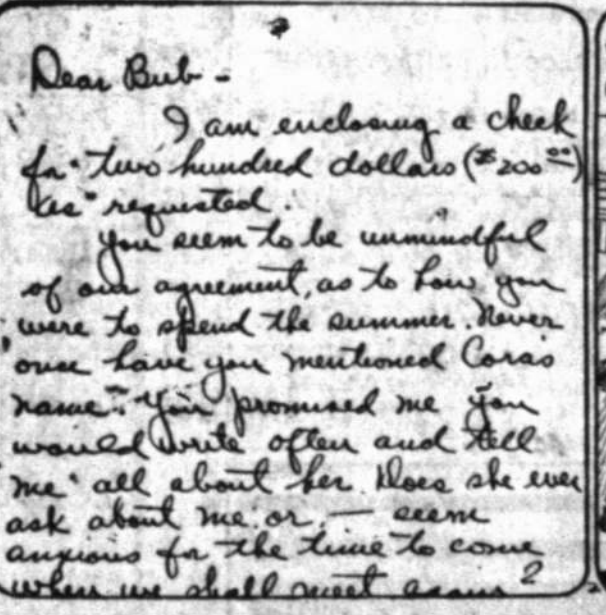 Dear Bub -
I am enclosing a check
for two hundred dollars ($200.00)
as requested.
You seem to be unmindful
of our agreement, as to how you
were to spend the summer. Never
once have you mentioned Cora's
name. You promised me you
would write often and tell
me all about her. Does she ever
ask about me or — seem
anxious for the time to come
when we shall meet again?